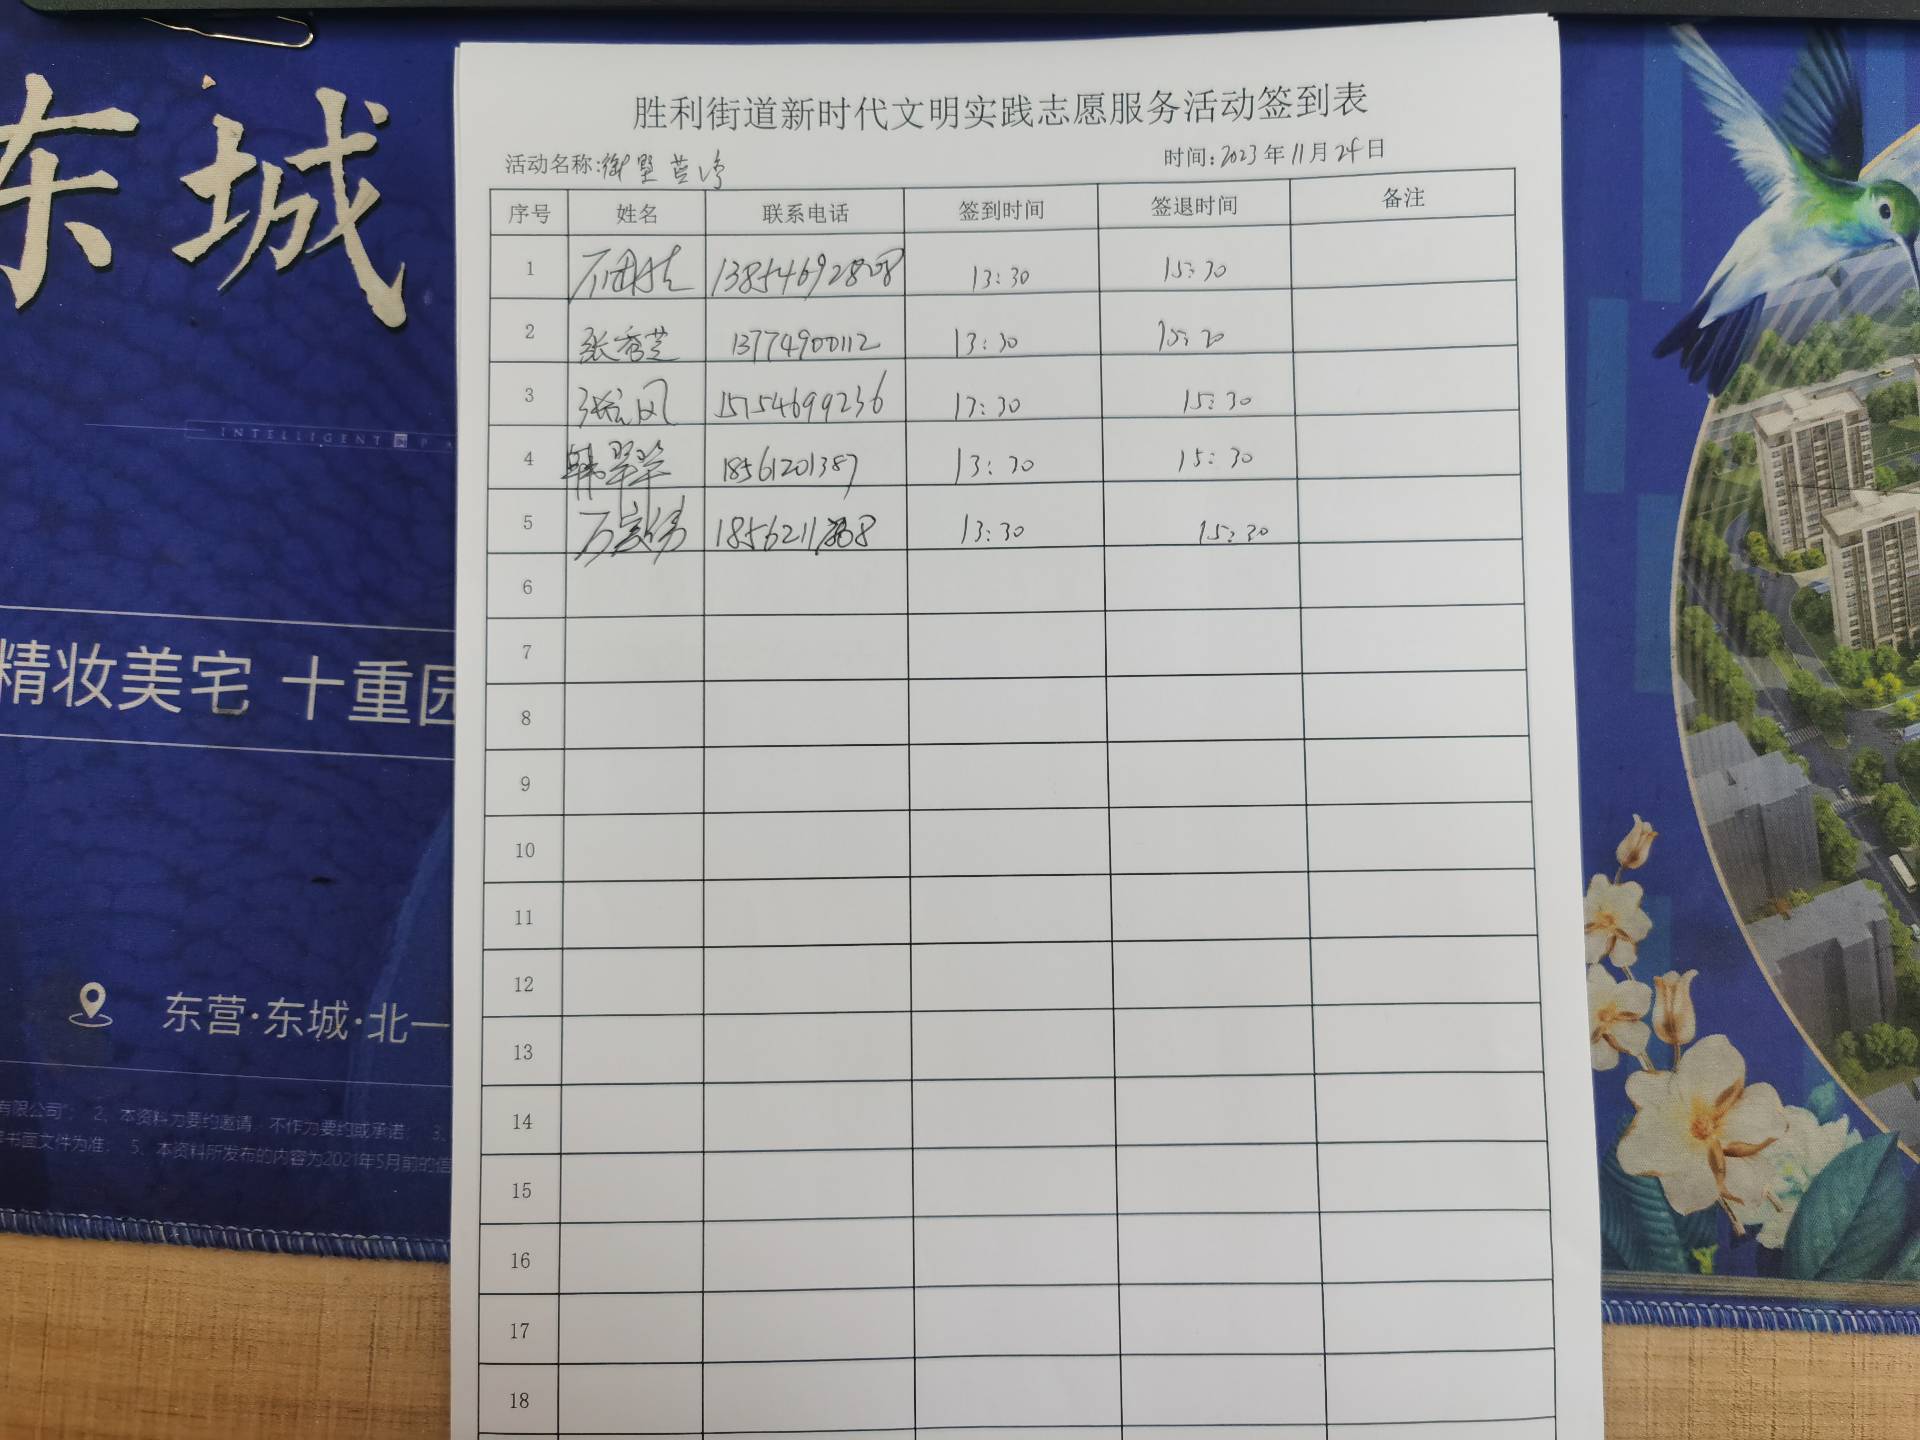 东城
INTELLIGENT PA
精妆美宅 十重园
东营·东城·北一
有限公司"; 2、本资料为要约邀请,不作为要约或承诺; 3、
书面文件为准; 5、本资料所发布的内容为2021年5月前的信
胜利街道新时代文明实践志愿服务活动签到表
活动名称:御墅
时间:2023年11月24日
序号 姓名 联系电话 签到时间 签退时间 备注
1 13:30 15:30
2 张秀芝 13774900112 13:30 15:30
3 张 风 15154699236 13:30 15:30
4 韩翠 18561201387 13:30 15:30
5 万 伟 13:30 15:30
6
7
8
9
10
11
12
13
14
15
16
17
18